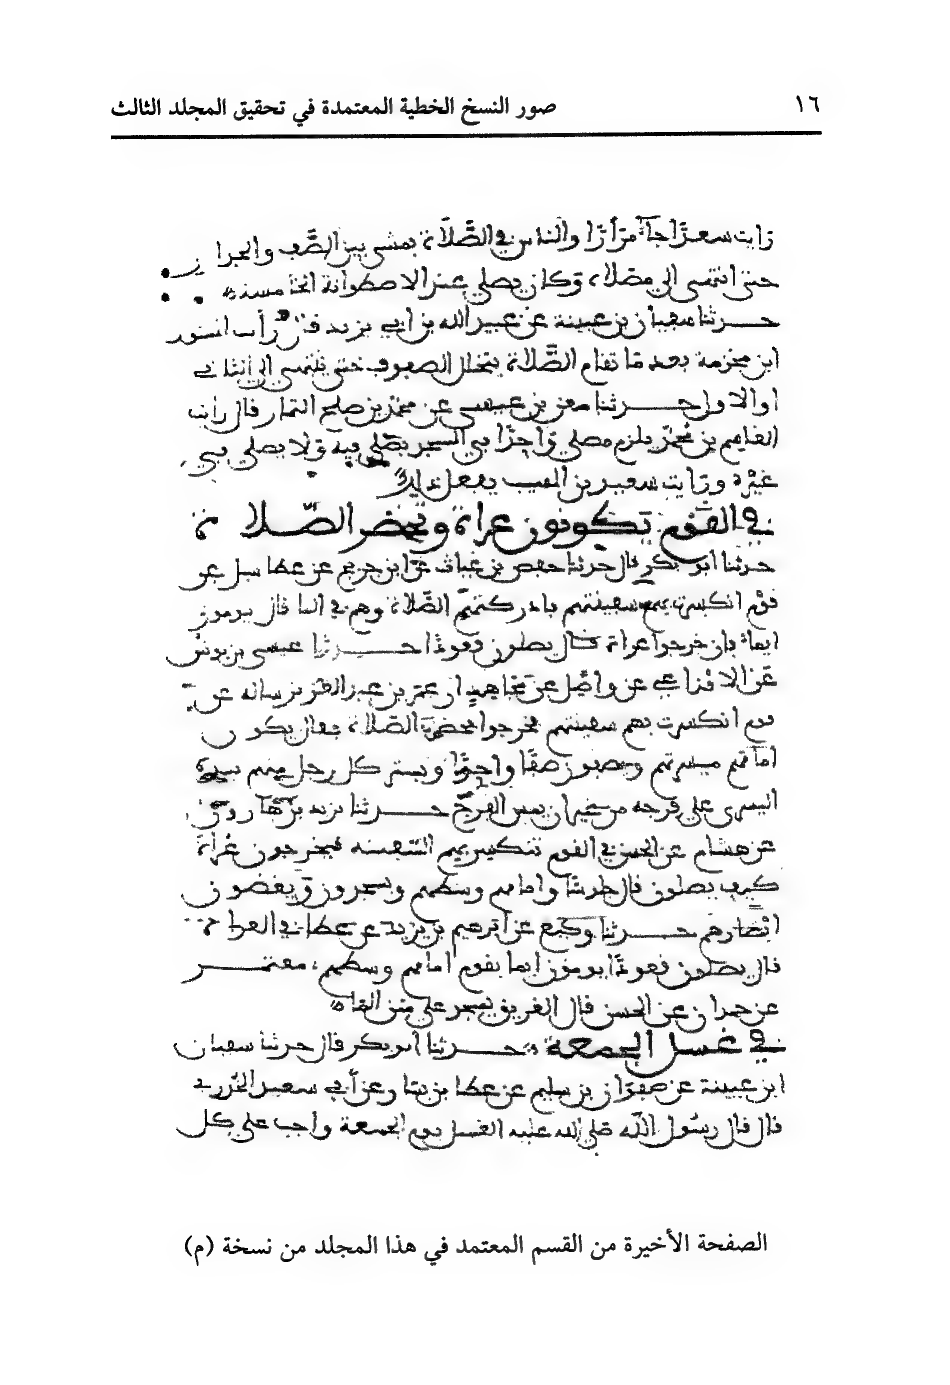 ١٦ صور النسخ الخطية المعتمدة في تحقيق المجلد الثالث
رايت سعدا جاء مرارا والناس في الصلاة يمشي بين الصف والجدار
حتى انتهى الى مصلاه وكان يصلي عند الاصطوانة الخامسة
حدثنا سفيان بن عيينة عن عبيد الله بن ابي يزيد قال رأيت المسور
ابن مخرمة بعد ما تقام الصلاة يتخلل الصفوف حتى ينتهي الى الثاني
او الاول حدثنا معن بن عيسى عن محمد بن صلح التمار قال رايت
القاسم بن محمد يلزم مصلى واحدا في المسجد يصلي فيه ولا يصلي في
غيره ورايت سعيد بن المسيب يفعل ذلك
في القوم يكونون عراة وتحضر الصلاة
حدثنا ابو بكر قال حدثنا حفص بن غياث عن ابن جريج عن عطا سيل عن
قوم انكسرت بهم سفينتهم فادركتهم الصلاة وهم في الما قال يومون
ايماء فان خرجوا عراة قال يصلون قعودا حدثنا عيسى بن يونس
عن الاوزاعي عن واصل عن مجاهد ان عمر بن عبد العزيز ساله عن
قوم انكسرت بهم سفينتهم فخرجوا فحضرت الصلاة فقال يكون
امامهم ميسرتهم ويصفون صفا واحدا ويستر كل رجل منهم بيده
اليسرى على فرجه من غير ان يمس الفرج حدثنا يزيد بن هارون
عن هشام عن الحسن في القوم تنكسر بهم السفينة فيخرجون عراة
كيف يصلون قال جلوسا وامامهم وسطهم ويسجدون ويغضون
ابصارهم حدثنا وكيع عن ابرهيم بن يزيد عن عطا في العراة
قال يصلون قعودا يومون ايما يقوم امامهم وسطهم معتمر
عن حدثان عن الحسن قال الغريق يسجد على متن الماء
في غسل الجمعة حدثنا ابو بكر قال حدثنا سفيان
ابن عيينة عن صفوان بن سليم عن عطا بن يسار عن أبي سعيد الخدري
قال قال رسول الله صلى الله عليه الغسل يوم الجمعة واجب على كل
الصفحة الأخيرة من القسم المعتمد في هذا المجلد من نسخة (م)